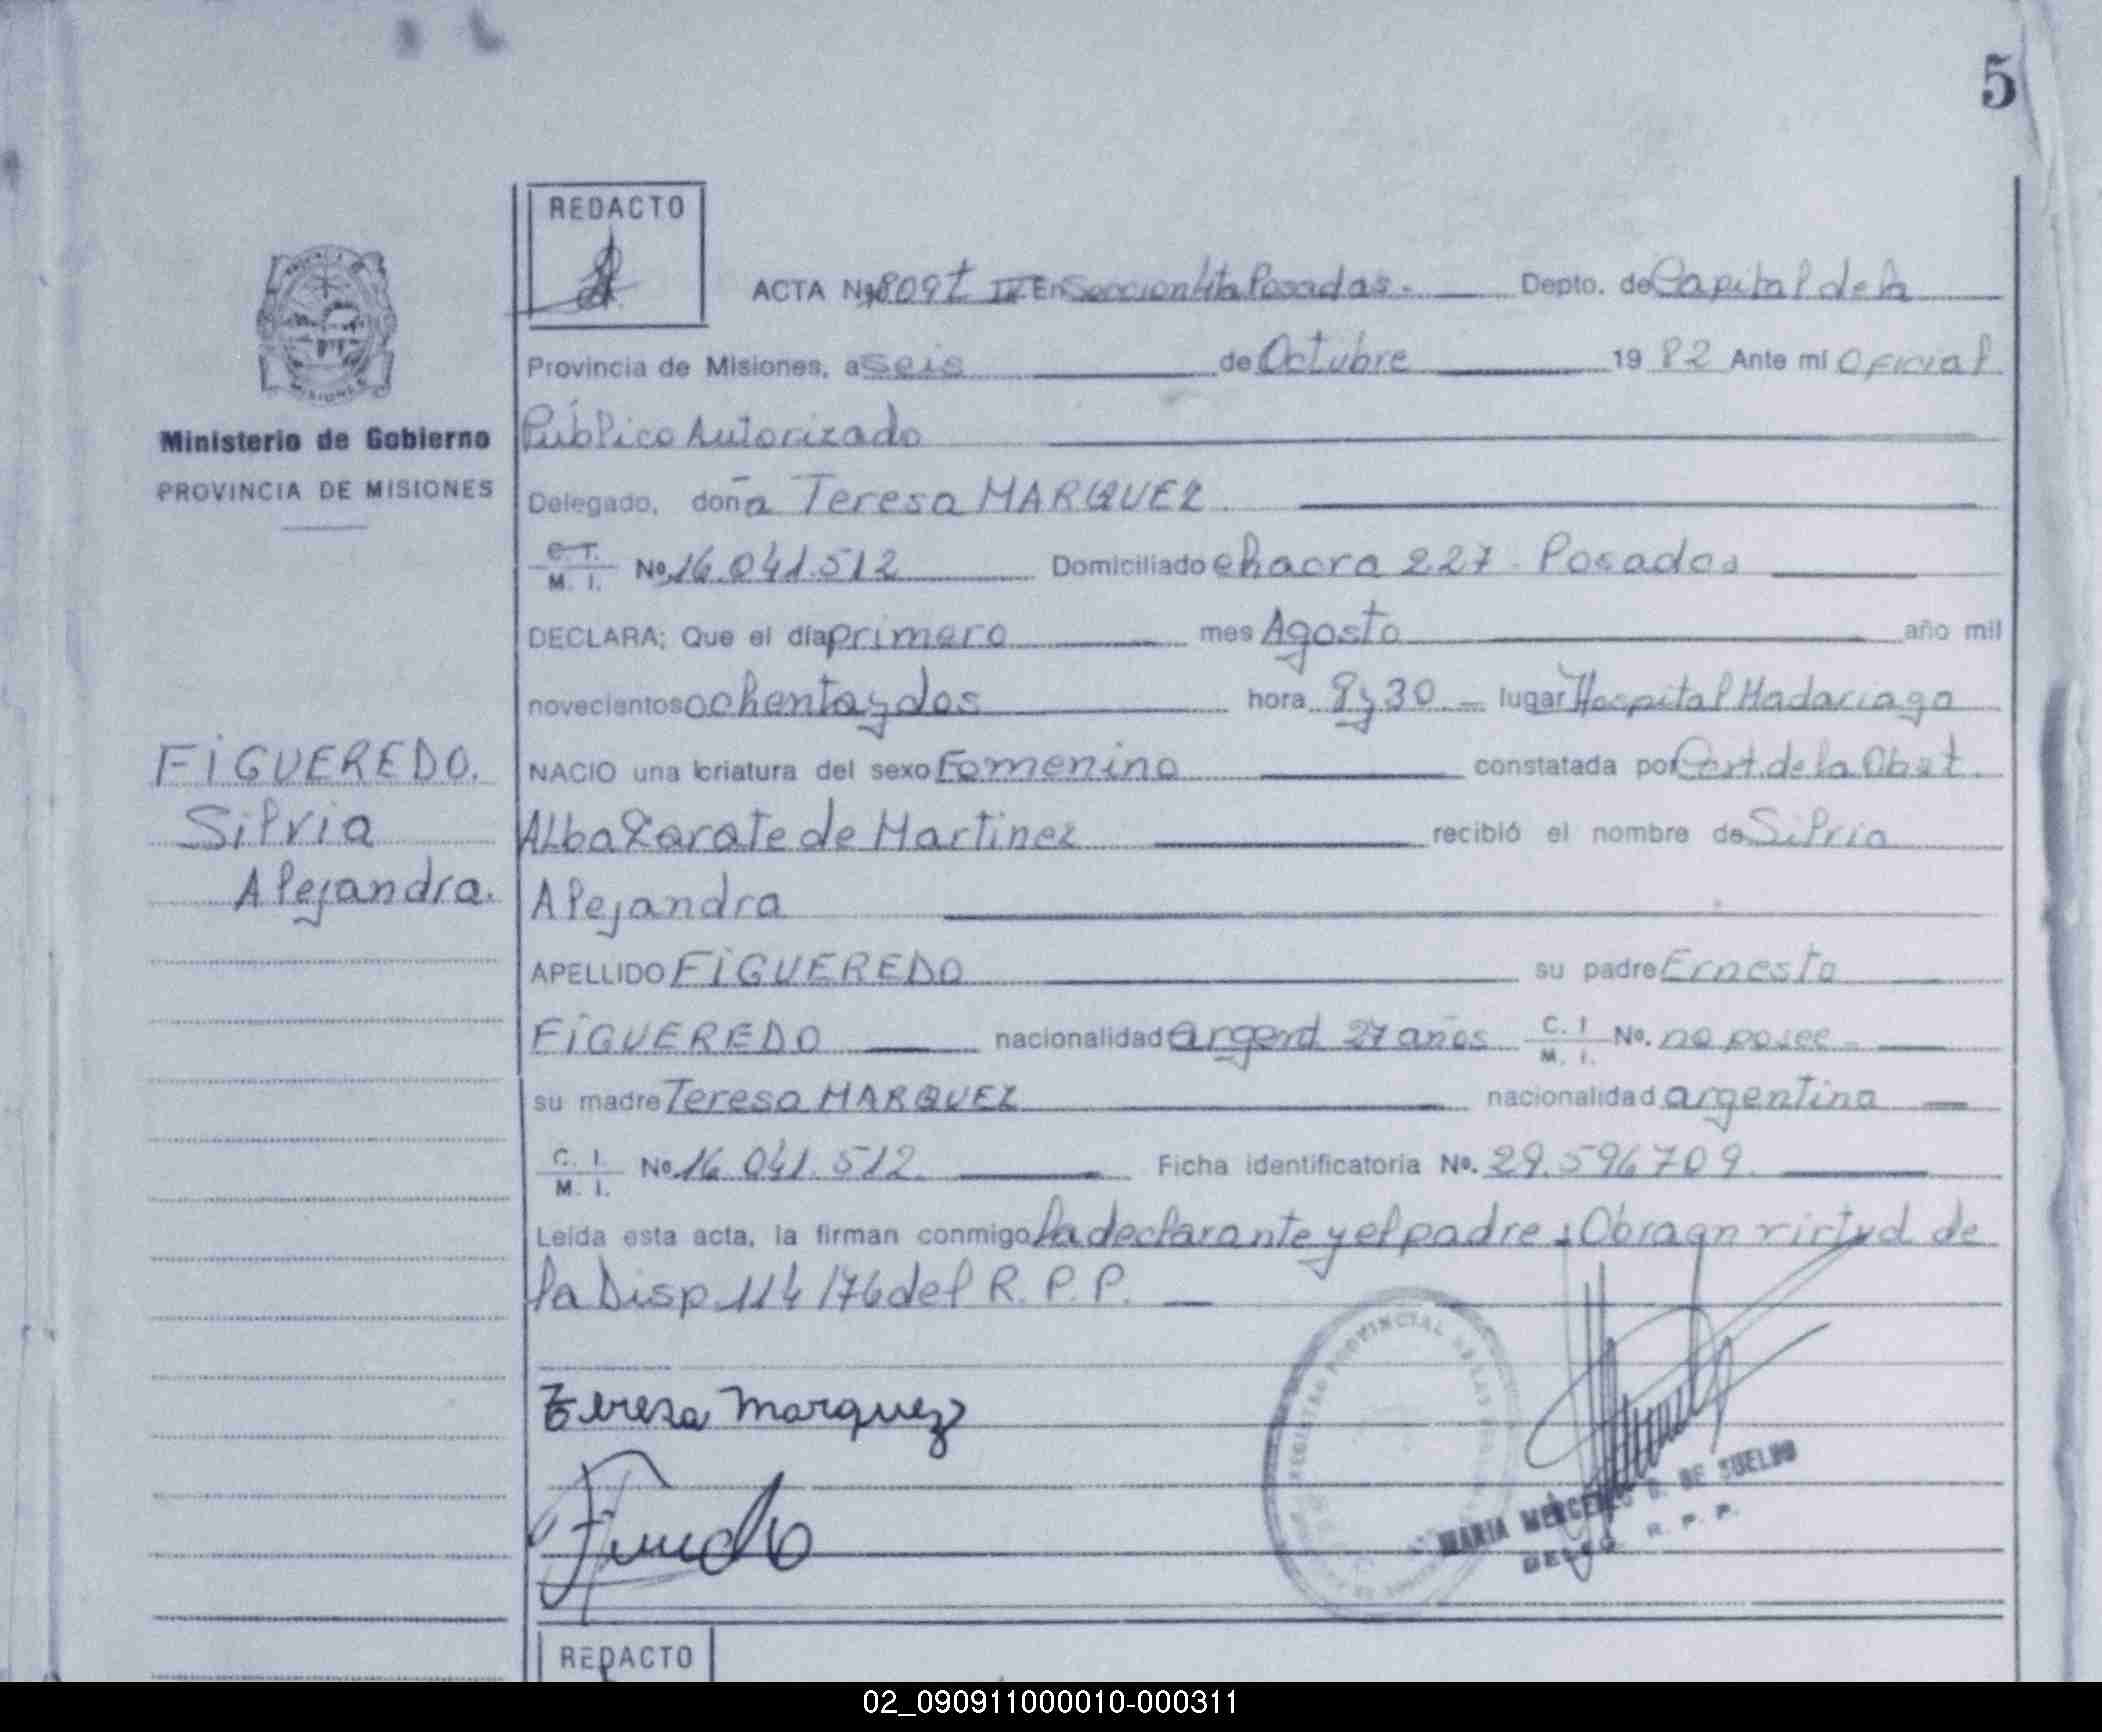 5
REDACTO
ACTA Nº 809 t IV En Seccion 4ta Posadas. Depto. de Capital de la
Provincia de Misiones, a seis de Octubre 19 82 Ante mí Oficial
Ministerio de Gobierno
Público Autorizado
PROVINCIA DE MISIONES
Delegado, doña Teresa MARQUEZ
C. T. M. I. Nº 16.041.512 Domiciliado chacra 227 - Posadas
DECLARA; Que el día primero mes Agosto año mil
novecientos ochenta y dos hora 8 y 30 lugar Hospital Madariaga
FIGUEREDO.
NACIO una criatura del sexo Femenino constatada por Cert. de la Obst.
Silvia
Alba Zarate de Martinez recibió el nombre de Silvia
Alejandra.
Alejandra
APELLIDO FIGUEREDO su padre Ernesto
FIGUEREDO nacionalidad argent. 27 años C. I. M. I. Nº. no posee
su madre Teresa MARQUEZ nacionalidad argentina
C. I. M. I. Nº 16.041.512. Ficha identificatoria Nº. 29.596709.
Leída esta acta, la firman conmigo la declarante y el padre. Obra en virtud de
la Disp. 114/76 del R. P. P.
REGISTRO PROVINCIAL DE LAS
Teresa Marquez
MARIA MERCEDES DE SUELDO
R. P. P.
REDACTO
02_090911000010-000311